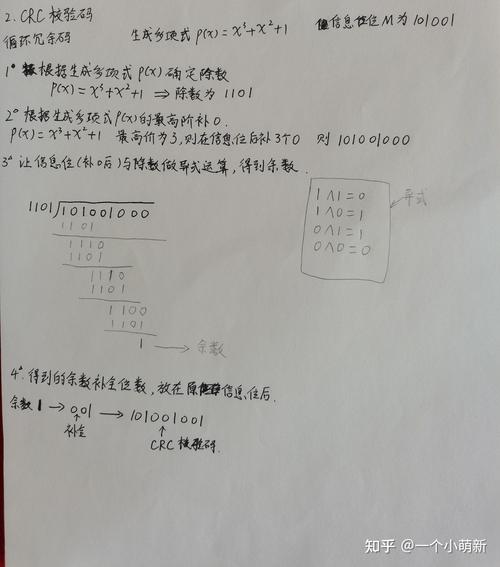 2. CRC 校验码
循环冗余码 生成多项式 P(x) = x³+x²+1 信息位 M 为 101001
1° 根据生成多项式 P(x) 确定除数
P(x) = x³+x²+1 ⇒ 除数为 1101
2° 根据生成多项式 P(x) 的最高阶补 0.
P(x) = x³+x²+1 最高阶为 3, 则在信息位后补 3 个 0 则 101001000
3° 让信息位 (补 0 后) 与除数做异式运算, 得到余数.
1101 101001000
1101
1110
1101
1110
1101
1100
1101
1 → 余数
1∧1=0
1∧0=1
0∧1=1
0∧0=0
异式
4° 得到的余数补全位数, 放在原信息位后.
余数 1 → 001 → 101001001
↑ ↑
补全 CRC 校验码
知乎 @一个小萌新